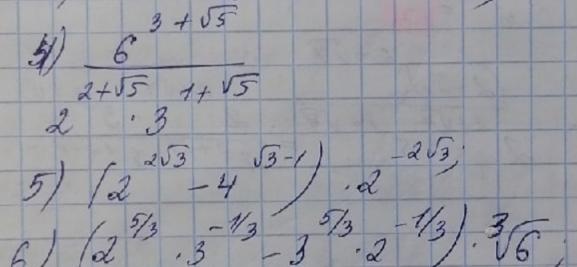 4) 6^{3+√5} / 2^{2+√5} · 3^{1+√5}
5) (2^{2√3} - 4^{√3-1}) · 2^{-2√3};
6) (2^{5/3} · 3^{-1/3} - 3^{5/3} · 2^{-1/3}) · ∛6;